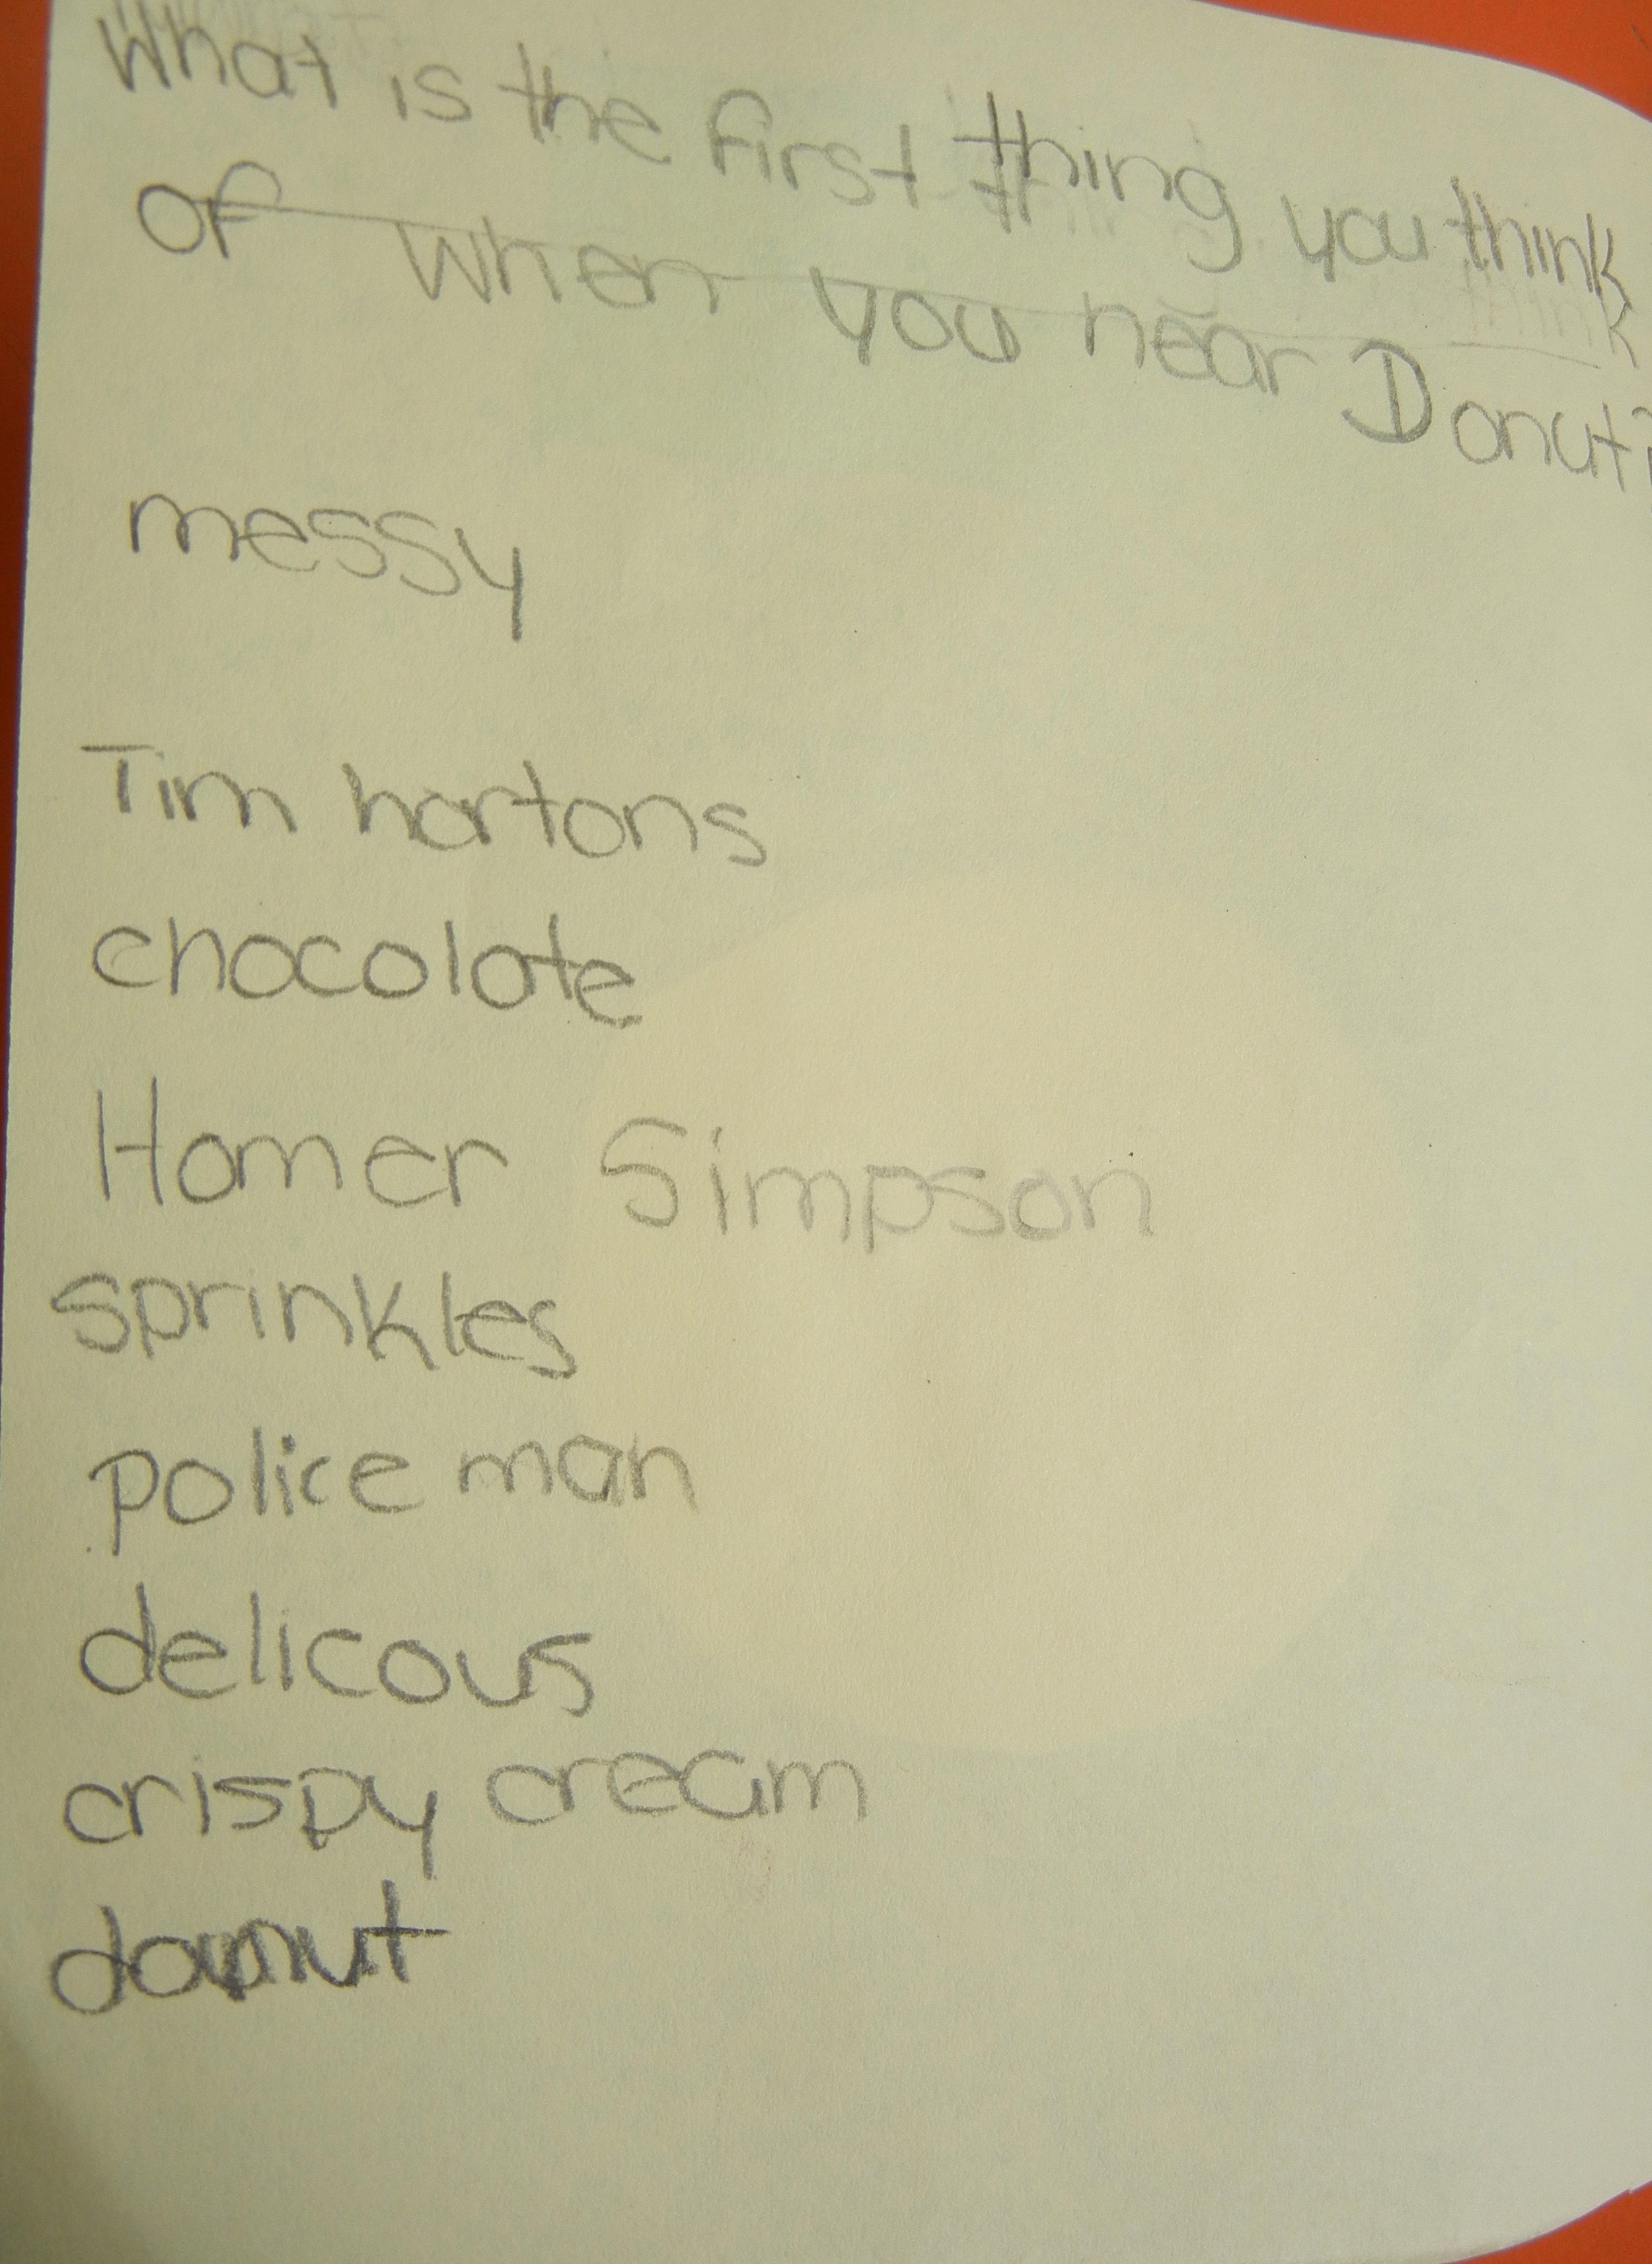 What is the first thing you think
of when you hear Donut?
messy
Tim hortons
chocolate
Homer Simpson
sprinkles
police man
delicous
crispy cream
donut